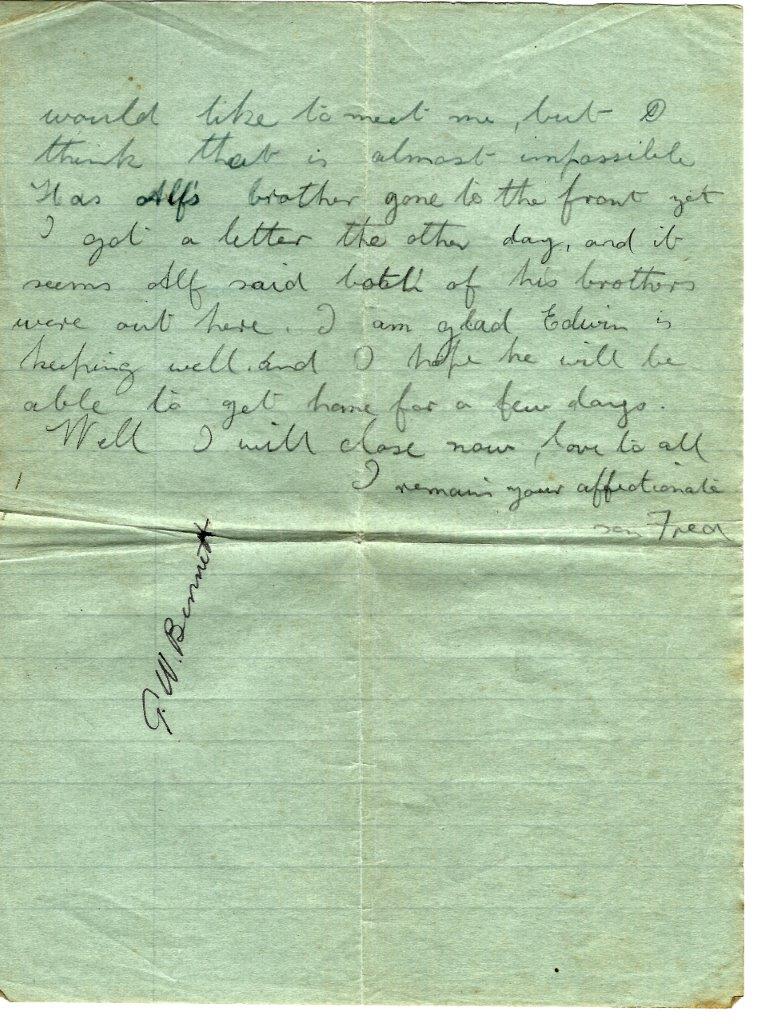 would like to meet me, but I
think that is almost impossible
Has Alf's brother gone to the front yet
I got a letter the other day, and it
seems Alf said both of his brothers
were out here. I am glad Edwin is
keeping well. and I hope he will be
able to get home for a few days.
Well I will close now, love to all
I remain your affectionate
son Fred
G. W. Bennett